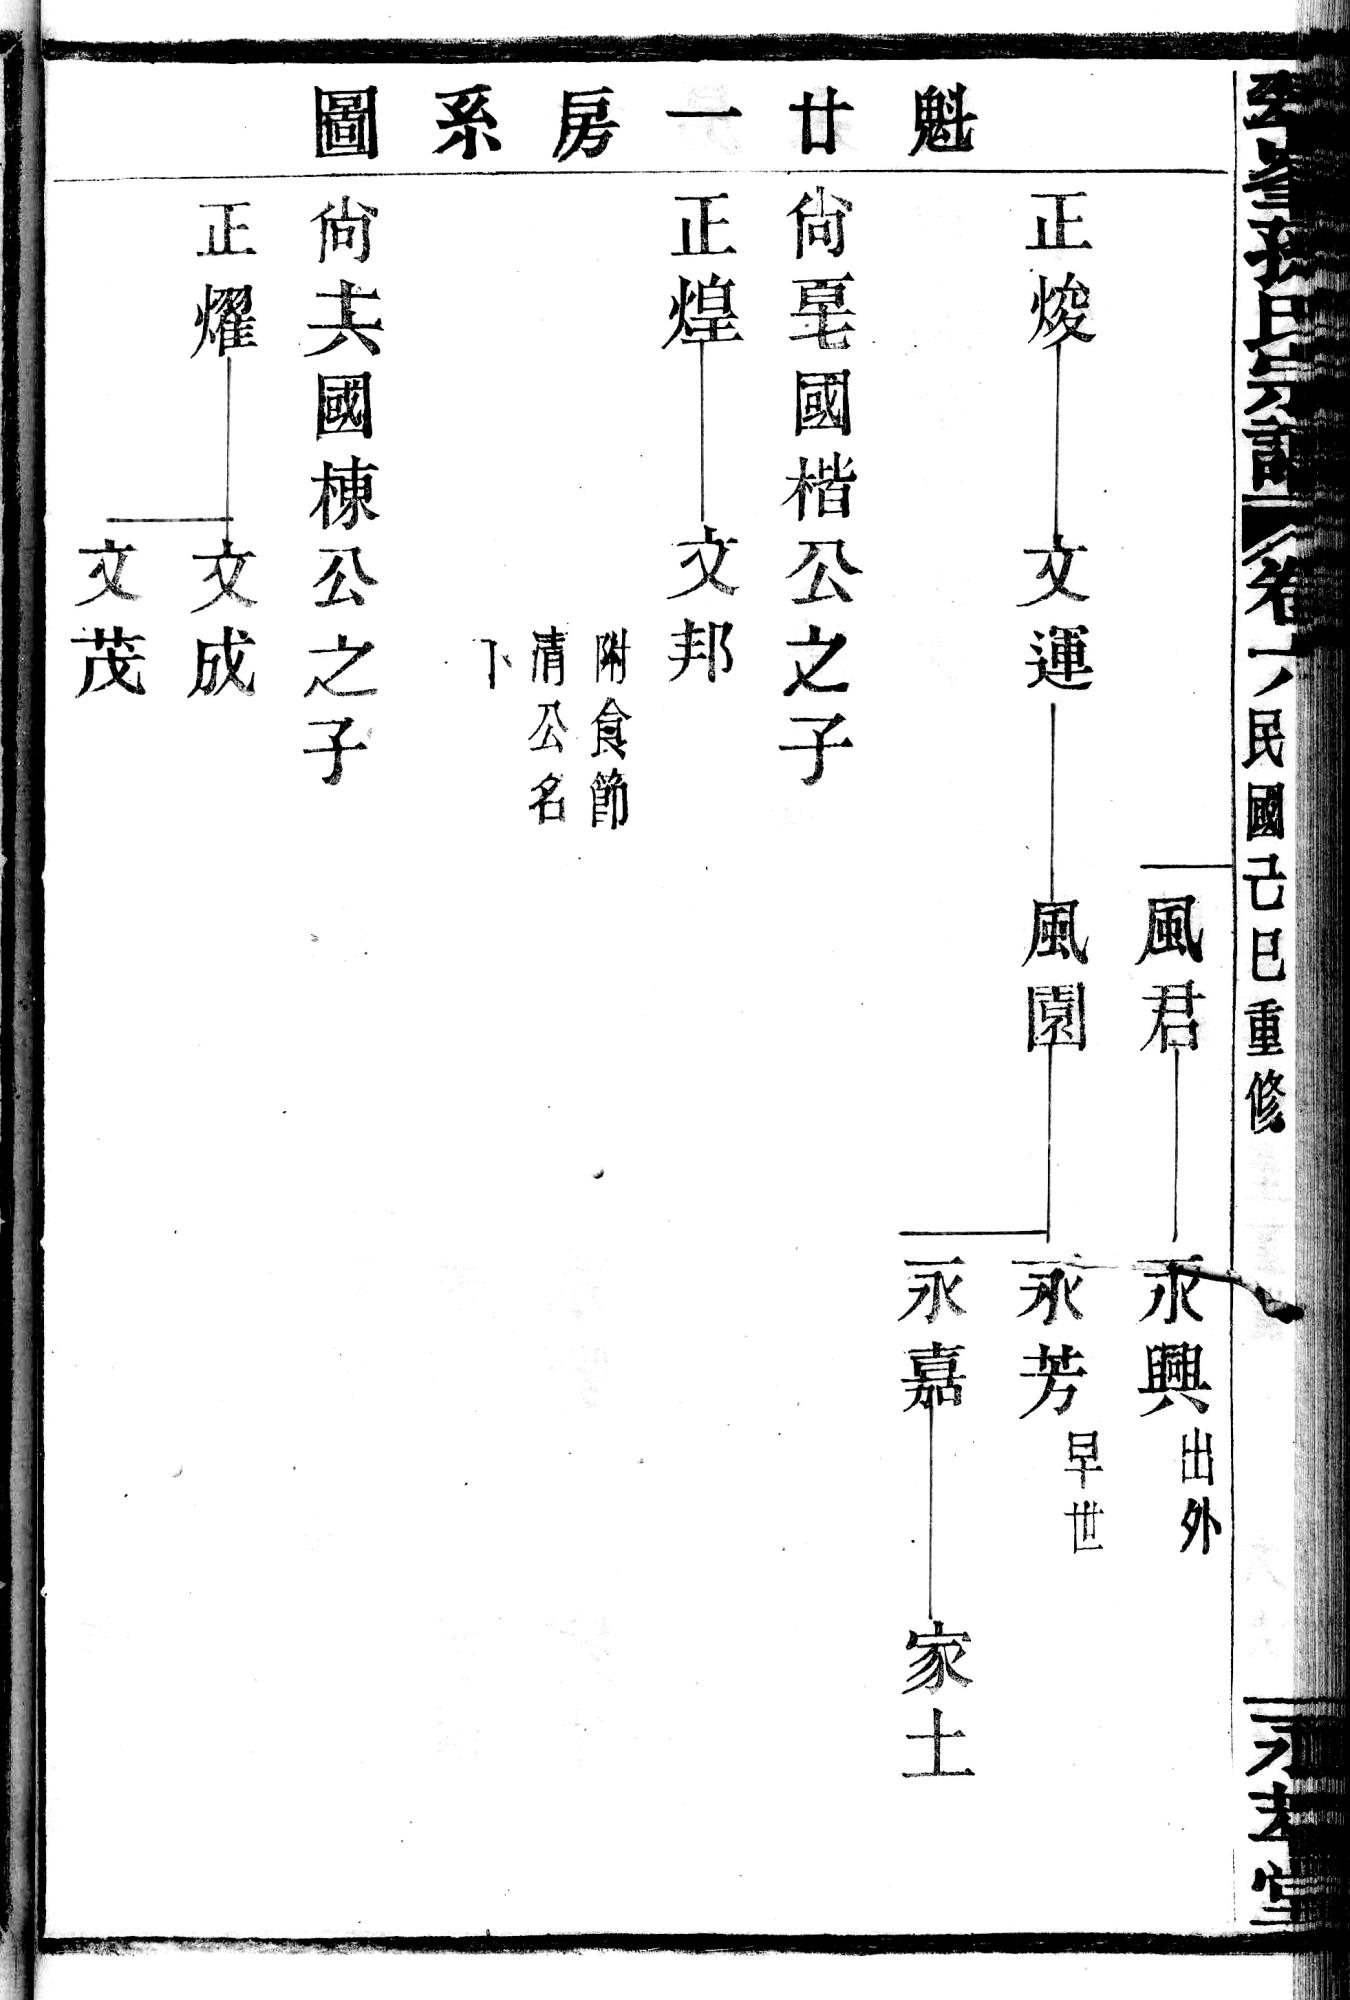 氏宗譜 卷六 民國己巳重修 堂
魁廿一房系圖
風君 永興 出外
正焌 文運 風園 永芳 早世
永嘉 家土
尙 國楷公之子
正煌 文邦 附食節
清公名
下
尙十六國棟公之子
正燿 文成
文茂